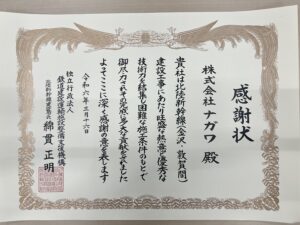 感謝状
株式会社ナガワ 殿
貴社は北陸新幹線（金沢・敦賀間）
建設工事にあたり旺盛な熱意と優秀な
技術力を結集し困難な施工条件のもとで
御尽力されその完成に多大な貢献をされました
よってここに深く感謝の意を表します
令和六年三月十六日
独立行政法人
鉄道建設・運輸施設整備支援機構
綿貫正明